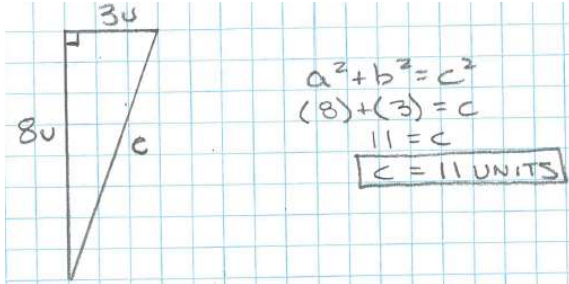 3u
8u
c
a² + b² = c²
(8)+(3) = c
11 = c
c = 11 UNITS